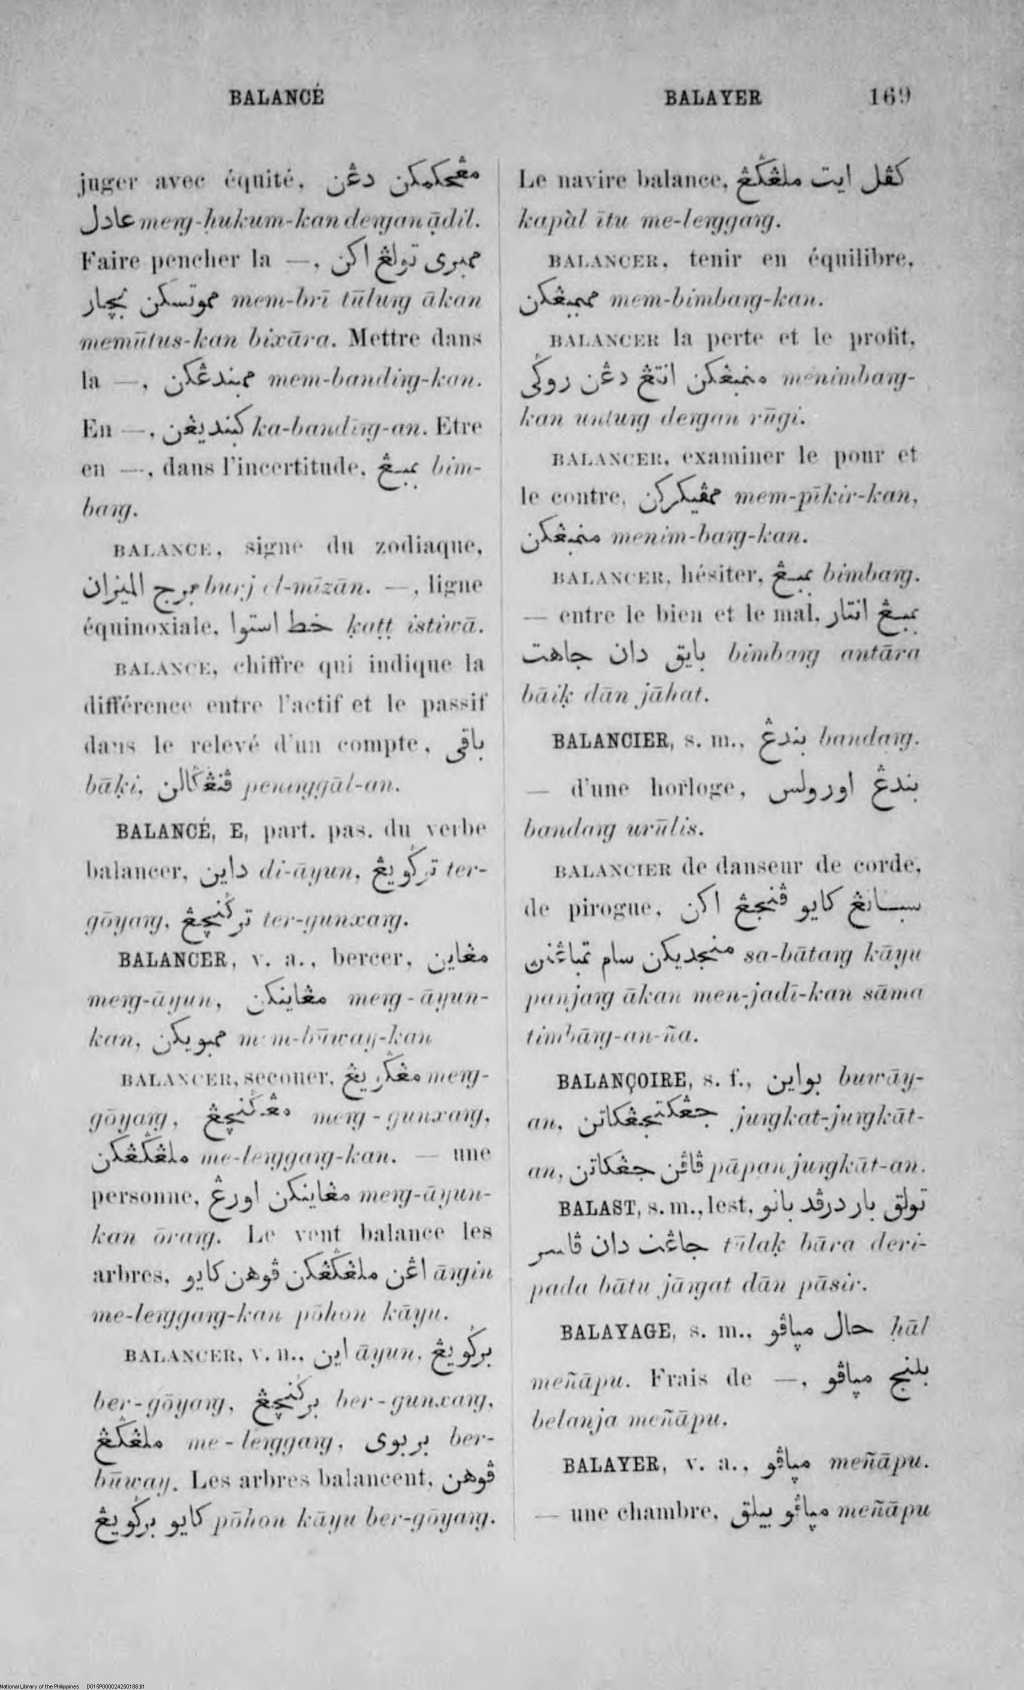 BALANCÉ
BALAYER 169
juger avec équité, مڠحكمكن دڠن
عادل meng-ḥukum-kan dengan ạ̄dil.
Faire pencher la —, ممبري تولڠ اكن
مموتسكن بچار mem-brī tūlung ākan
memūtus-kan bixāra. Mettre dans
la —, ممبندڠكن mem-banding-kan.
En —, كبنديڠن ka-banding-an. Etre
en —, dans l'incertitude, بمبڠ bim-
bang.
BALANCE, signe du zodiaque,
برج الميزان burj el-mīzān. —, ligne
équinoxiale, خط استوا ḳaṭṭ istiwā.
BALANCE, chiffre qui indique la
différence entre l'actif et le passif
dans le relevé d'un compte, باقي
bāḳi, ڤنڠݢالن peninggāl-an.
BALANCÉ, E, part. pas. du verbe
balancer, داين di-āyun, ترݢويڠ ter-
gōyang, ترݢنچڠ ter-gunxang.
BALANCER, v. a., bercer, مڠاين
meng-āyun, مڠاينكن meng-āyun-
kan, ممبويكن mem-būway-kan
BALANCER, secouer, مڠݢويڠ meng-
gōyang, مڠݢنچڠ meng-gunxang,
ملڠݢڠكن me-lenggang-kan. — une
personne, مڠاينكن اورڠ meng-āyun-
kan ōrang. Le vent balance les
arbres, اڠن ملڠݢڠكن ڤوهن كايو āngin
me-lenggang-kan pōhon kāyu.
BALANCER, v. n., اين āyun, برݢويڠ
ber-gōyang, برݢنچڠ ber-gunxang,
ملڠݢڠ me-lenggang, بربوي ber-
būway. Les arbres balancent, ڤوهن
كايو برݢويڠ pōhon kāyu ber-gōyang.
Le navire balance, كڤل ايت ملڠݢڠ
kapàl ītu me-lenggang.
BALANCER, tenir en équilibre,
ممبمبڠكن mem-bimbang-kan.
BALANCER la perte et le profit,
منمبڠكن انتڠ دڠن روݢي menimbang-
kan untung dengan rūgi.
BALANCER, examiner le pour et
le contre, ممڤيكركن mem-pīkir-kan,
منمبڠكن menim-bang-kan.
BALANCER, hésiter, بمبڠ bimbang.
— entre le bien et le mal, بمبڠ انتار
بايق دان جاهت bimbang antāra
bāiḳ dān jāhat.
BALANCIER, s. m., بندڠ bandang.
— d'une horloge, بندڠ اورولس
bandang urūlis.
BALANCIER de danseur de corde,
de pirogue, سباتڠ كايو ڤنجڠ اكن
منجديكن سام تمباڠنڽ sa-bātang kāyu
panjang ākan men-jadī-kan sāma
timbāng-an-ña.
BALANÇOIRE, s. f., بواين buwāy-
an, جڠكتجڠكاتن jungkat-jungkāt-
an, ڤاڤن جڠكاتن pāpan jungkāt-an.
BALAST, s. m., lest, تولق بار درڤد باتو
جاڠت دان ڤاسر tūlaḳ bāra deri-
pada bātu jāngat dān pāsir.
BALAYAGE, s. m., حال مڽاڤو ḥāl
meñāpu. Frais de —, بلنج مڽاڤو
belanja meñāpu.
BALAYER, v. a., مڽاڤو meñāpu.
— une chambre, مڽاڤو بيلق meñāpu
National Library of the Philippines